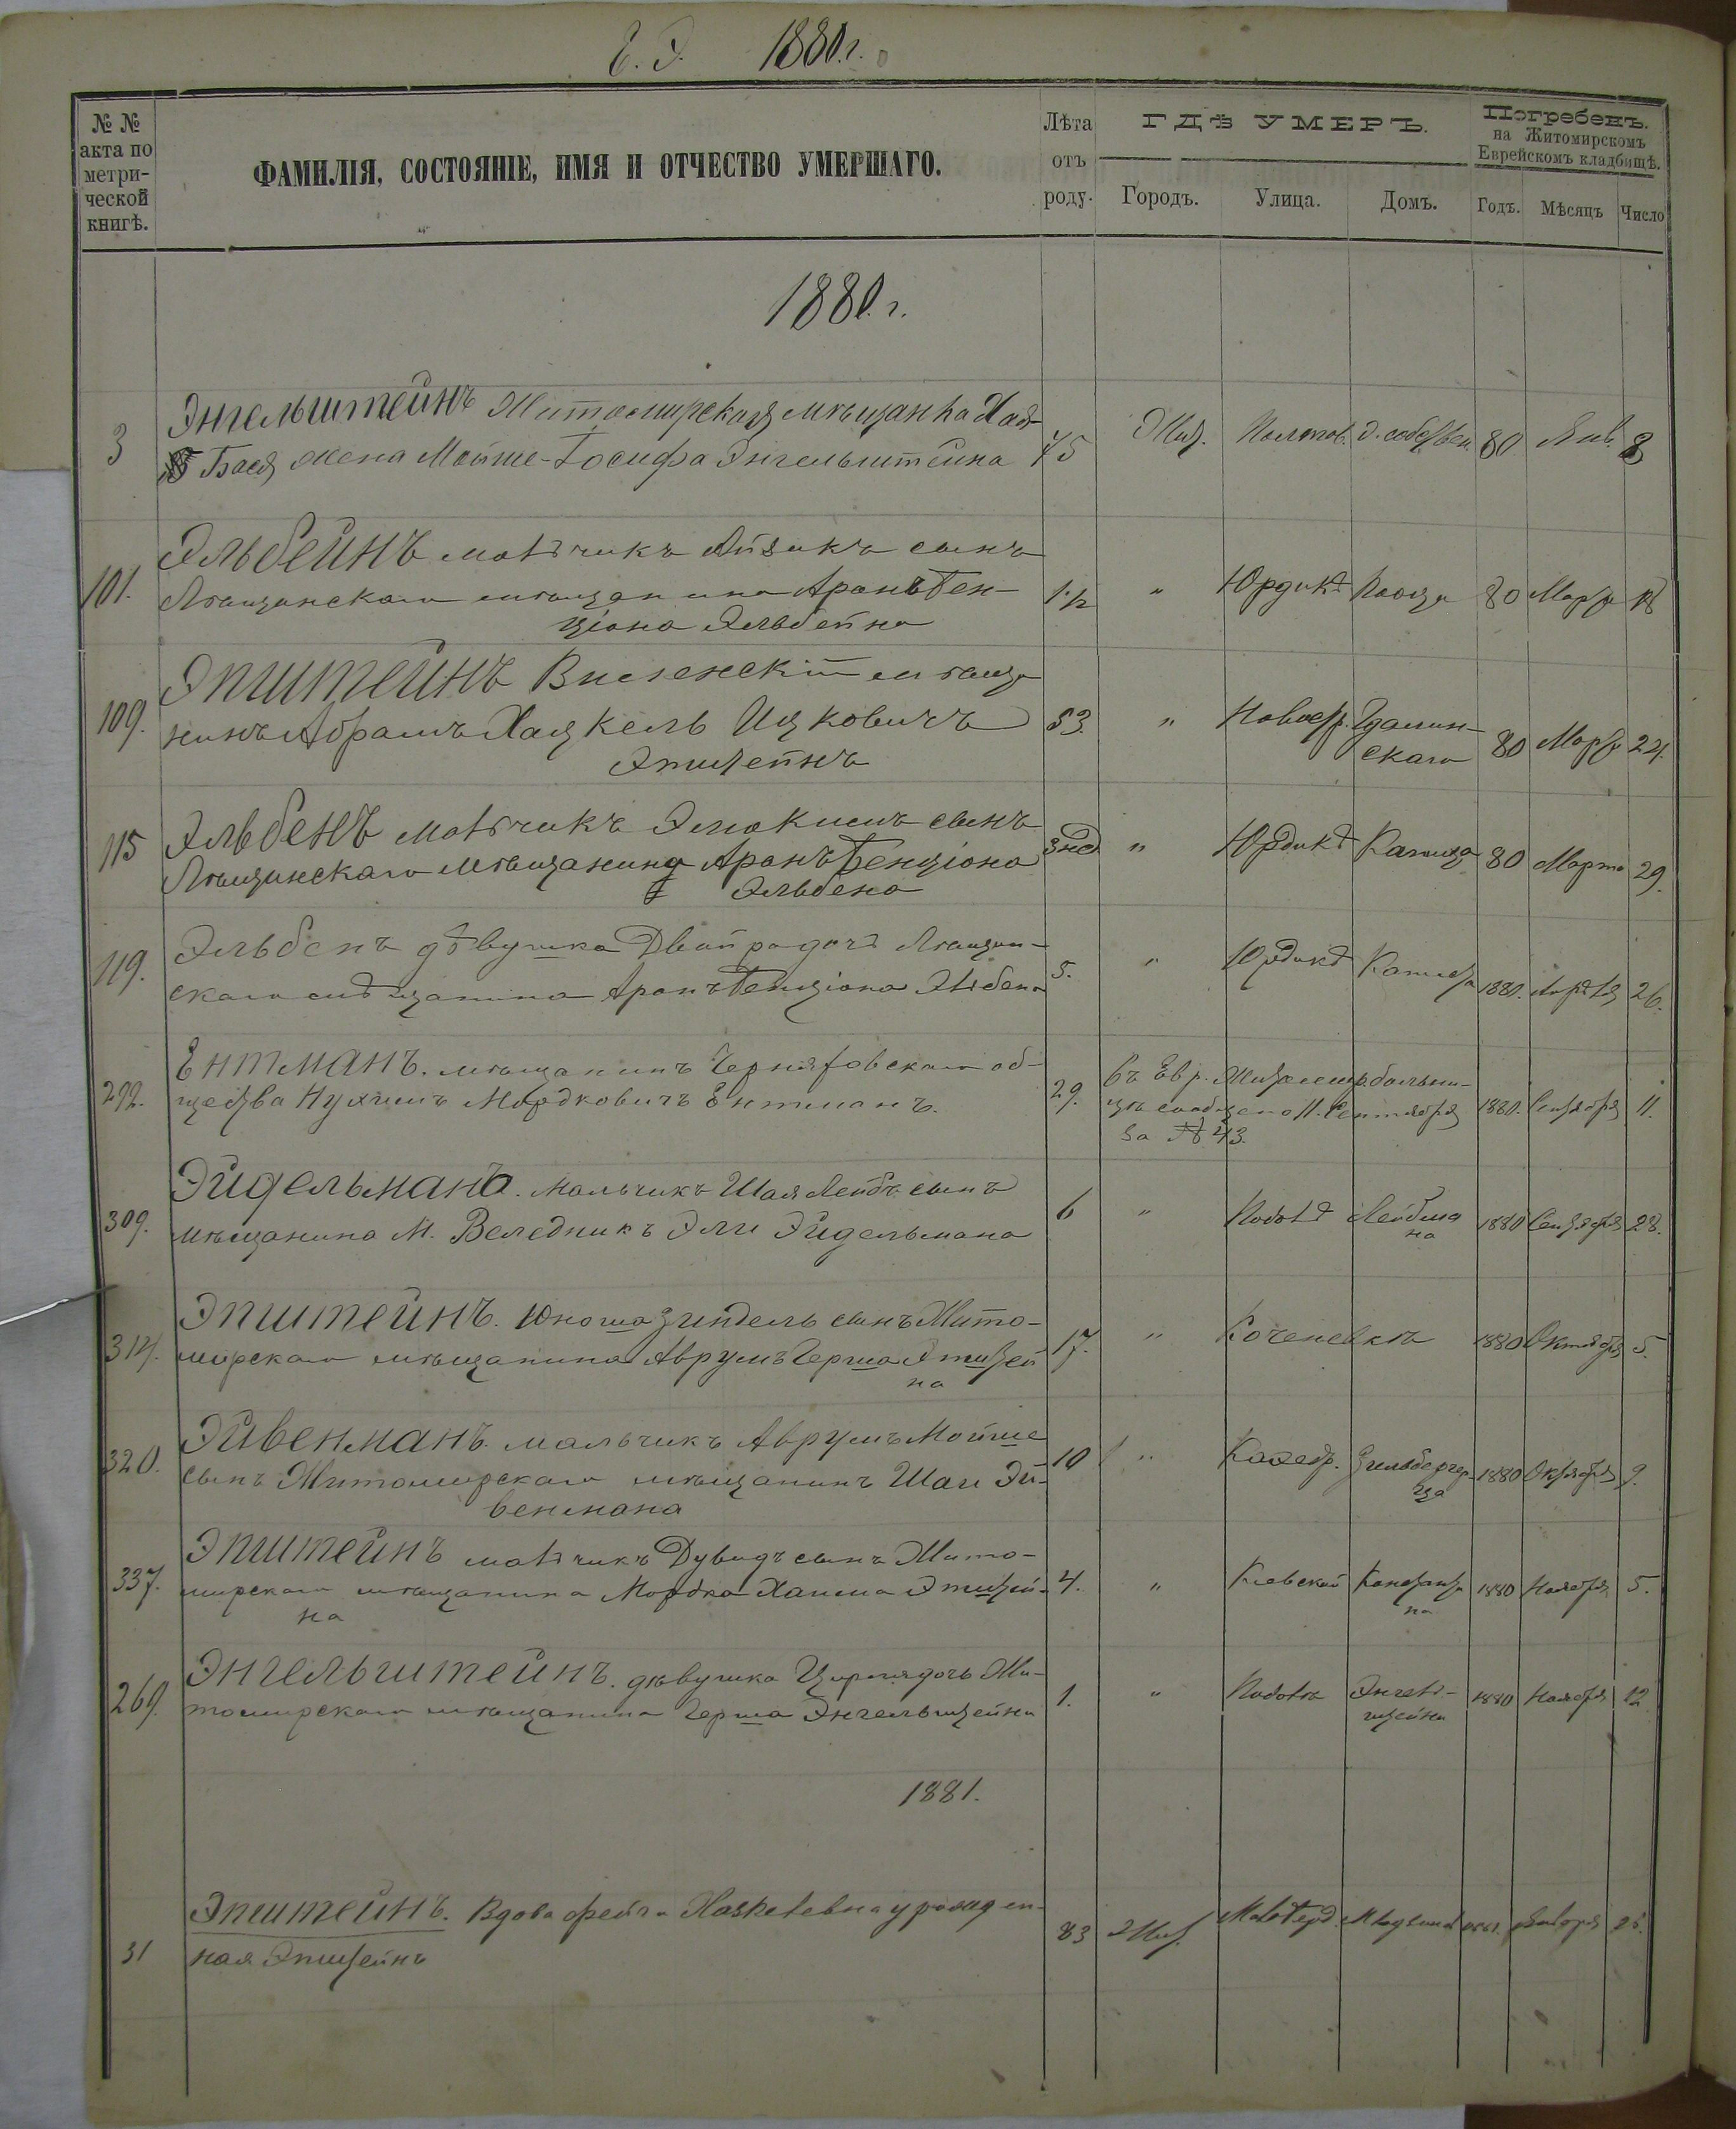 Е. Э. 1880 г.
№ №
акта по
метри-
ческой
книгѣ.
ФАМИЛІЯ, СОСТОЯНІЕ, ИМЯ И ОТЧЕСТВО УМЕРШАГО.
Лѣта
отъ
роду.
ГДѢ УМЕРЪ.
Городъ. Улица. Домъ.
Погребенъ.
на Житомирскомъ
Еврейскомъ кладбищѣ.
Годъ. Мѣсяцъ Число
1880 г.
3 Энгельштейнъ Житомирская мѣщанка Хая-
Бася жена Мойше-Іосифа Энгельштейна 75 Жит. д. собствен. 80 Янв. 8
101. Эльбейнъ мальчикъ Айзикъ сынъ
мѣщанина Аронъ Бен- 1½ " Юрдика 80 Марта 18
ціона Эльбейна
109. Эпштейнъ Виленскій мѣща
нинъ Абрамъ Хацкель Ицковичъ 83. " Новостр.
Эпштейнъ скаго 80 Марта 24.
115 Эльбенъ мальчикъ сынъ
мѣщанина Аронъ Бенціона 3 нед " Юрдика 80 Марта 29.
Эльбена
119. Эльбенъ дѣвушка Двойра дочь Лѣщин-
скаго мѣщанина Аронъ Бенціона Эльбена 5. " Юрдика 1880. Апрѣля 26.
292. Ентманъ. мѣщанинъ Черняховскаго об-
щества Нухимъ Мордковичъ Ентманъ. 29. въ Евр. Житомир. больни-
цѣ сообщено 11. Сентября 1880. Сентября 11.
за № 43.
309. Эйдельманъ. Мальчикъ Шая Лейбъ сынъ
мѣщанина М. Веледникъ Эли Эйдельмана 6 " Лейбма
на 1880 Сентября 28.
314. Эпштейнъ. Юноша Зиндель сынъ Жито-
мирскаго мѣщанина Аврумъ Герша Эпштей 17. " 1880 Октября 5.
на
320. Эйвенманъ. мальчикъ Аврумъ Мойше
сынъ Житомирскаго мѣщанинъ Шаи Эй- 10 " Каѳедр. Зильбергер-
ца 1880 Октября 9.
венмана
337. Эпштейнъ мальчикъ Дувидъ сынъ Жито-
мирскаго мѣщанина Мордка Хаима Эпштей- 4. " Кіевской 1880 Ноября 5.
на
269. Энгельштейнъ. дѣвушка дочь Жи-
томирскаго мѣщанина Герша Энгельштейна 1. " Энгель-
штейна 1880 Ноября 12
1881.
31 Эпштейнъ. Вдова Фейга Хаскелевна урожден-
ная Эпштейнъ 83 Жит. 1881. Января 28.